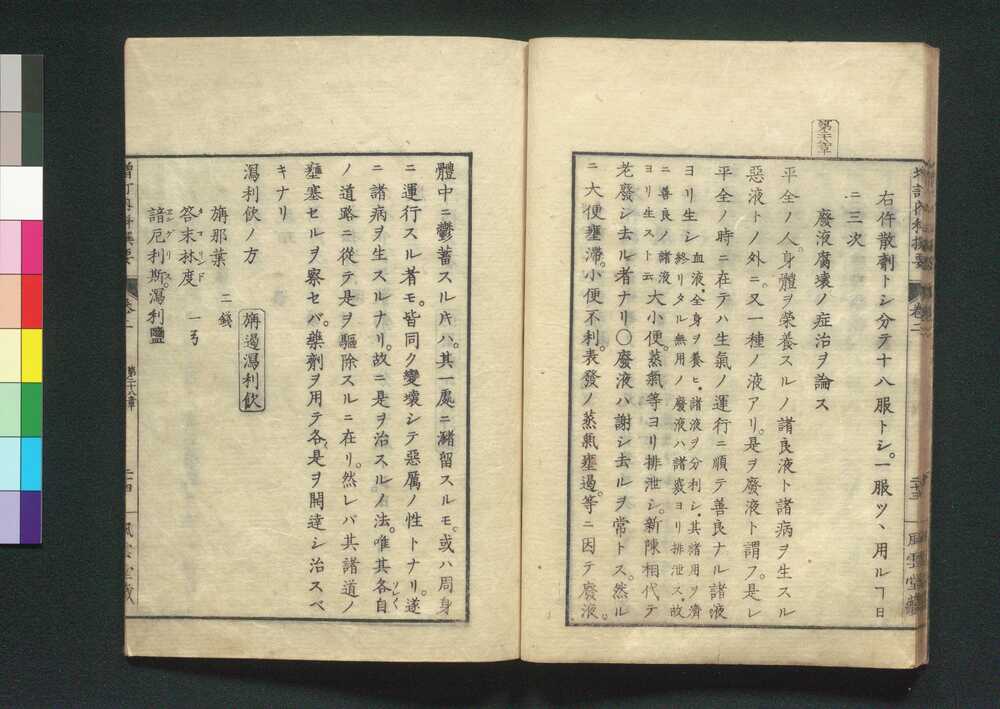 第二十八章
右件散劑トシ分テ十八服トシ。一服ツヽ用ルヿ日
二三次
廢液腐壞ノ症治ヲ論ス
平全ノ人。身體ヲ榮養スルノ諸良液ト諸病ヲ生スル
惡液トノ外ニ。又一種ノ液アリ。是ヲ廢液ト謂フ。是レ
平全ノ時ニ在テハ生氣ノ運行ニ順テ善良ナル諸液
ヨリ生シ 血液。全身ヲ養ヒ。諸液ヲ分利シ。其諸用ヲ濟
終リタル無用ノ廢液ハ諸竅ヨリ排泄ス。故
ニ善良ノ諸液
ヨリ生スト云 大小便。蒸氣等ヨリ排泄シ。新陳相代テ
老廢シ去ル者ナリ〇廢液ハ謝シ去ルヲ常トス。然ル
ニ大便壅滯。小便不利。表發ノ蒸氣壅遏。等ニ因テ廢液。
增訂內科撰要 卷二 風雲堂藏
體中ニ鬱蓄スル𪜈ハ。其一處ニ瀦留スルモ。或ハ周身
ニ運行スル者モ。皆同ク變壞シテ惡厲ノ性トナリ。遂
ニ諸病ヲ生スルナリ。故ニ是ヲ治スルノ法。唯其各自
ソレ〱
ノ道路ニ從テ是ヲ驅除スルニ在リ。然レバ其諸道ノ
壅塞セルヲ察セバ。藥劑ヲ用テ各。是ヲ開達シ治スベ
キナリ
瀉利飮ノ方 旃過瀉利飮
旃那葉 二錢
答末林度 一ヲ
タマリンド
諳厄利斯。瀉利鹽
エンゲリス
增訂內科撰要 卷二 第二十八章 二十四 風雲堂藏